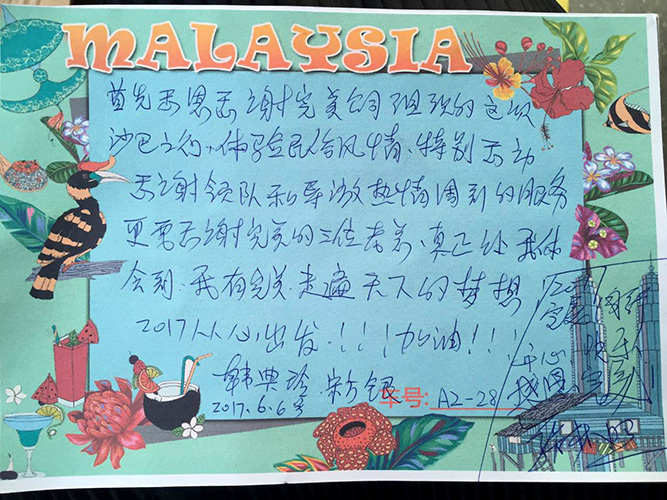 MALAYSIA
首先感恩感谢完美公司组织的这次
沙巴之行、体验民俗风情、特别感动
感谢领队和导游热情周到的服务
更要感谢完美的三位老总、真正让我体
会到、我有完美、走遍天下的梦想
2017从心出发!!!加油!!
韩典珍
2017.6.6号
车号: A2-28